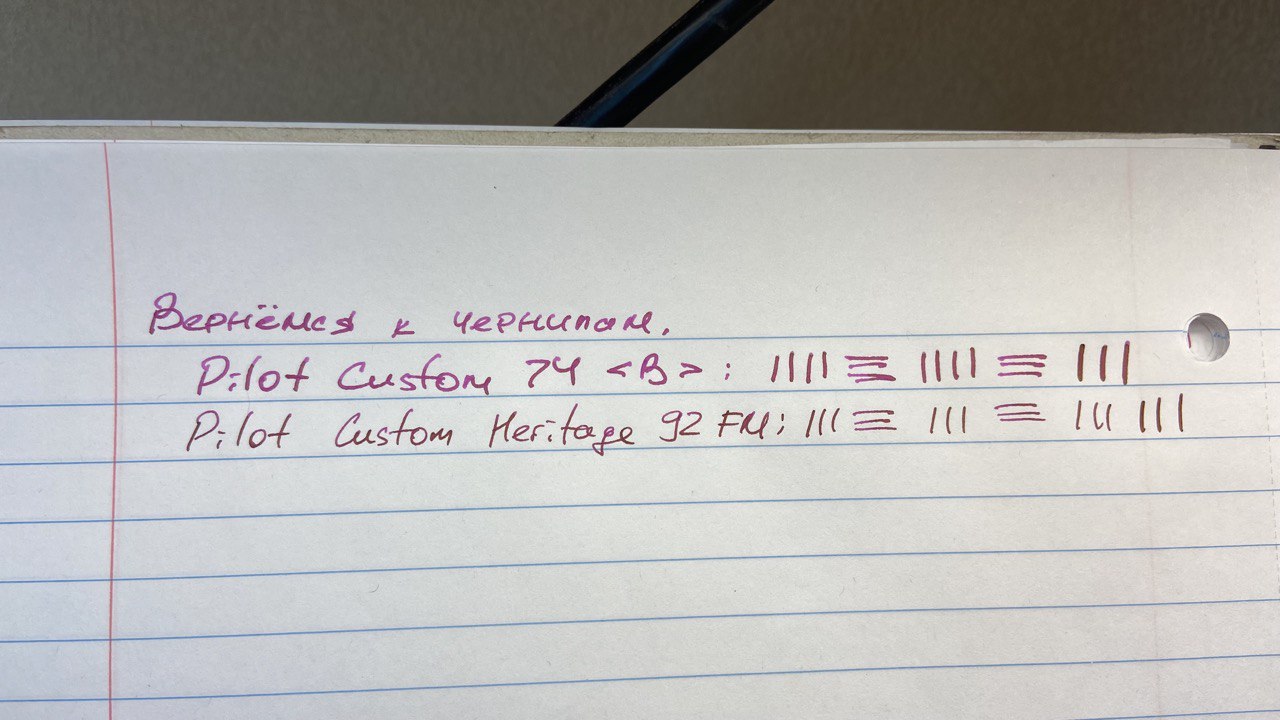 Вернёмся к чернилам.
Pilot Custom 74 <B>: |||| ≡ |||| ≡ |||
Pilot Custom Heritage 92 FM: ||| ≡ ||| ≡ ||| |||